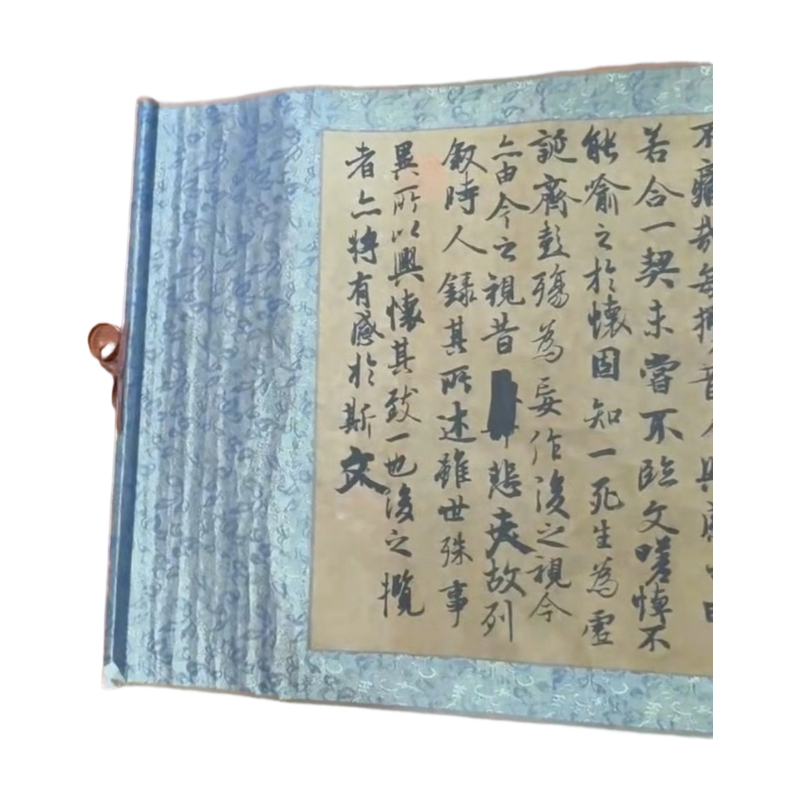 不痛哉每攬昔人興感
若合一契未嘗不臨文嗟悼不
能喻之於懷固知一死生為虛
誕齊彭殤為妄作後之視今
亦由今之視昔悲夫故列
叙時人錄其所述雖世殊事
異所以興懷其致一也後之攬
者亦將有感於斯文